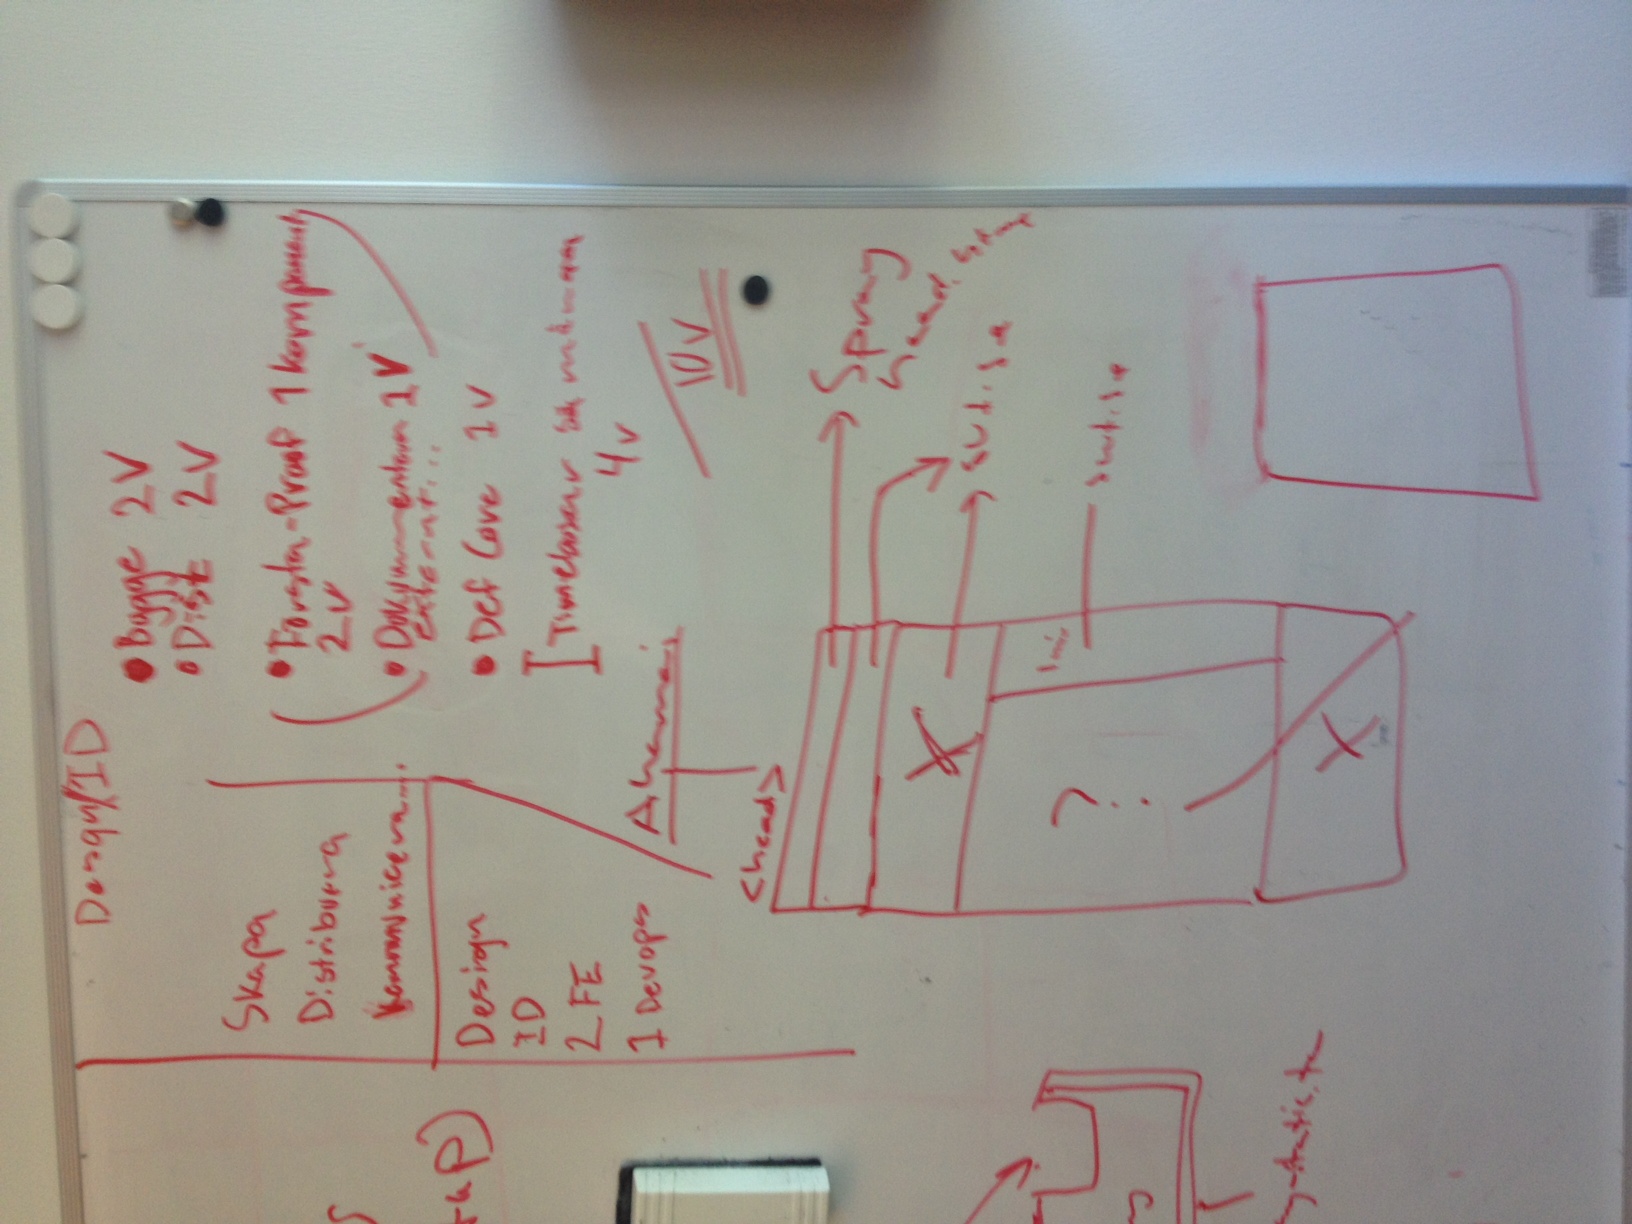 Design/ID
Skapa
Distribuera
Kommunicera...
Design
ID
2 FE
1 Devops
• Bygge 2V
• Dist 2V
• Första-Proof 1 komponent,
2V
• Dokumentera 1V
externt...
• Def Core 1V
4v
10V
Akamai
<head>
Spray
head.
svt.se
?
svt.se